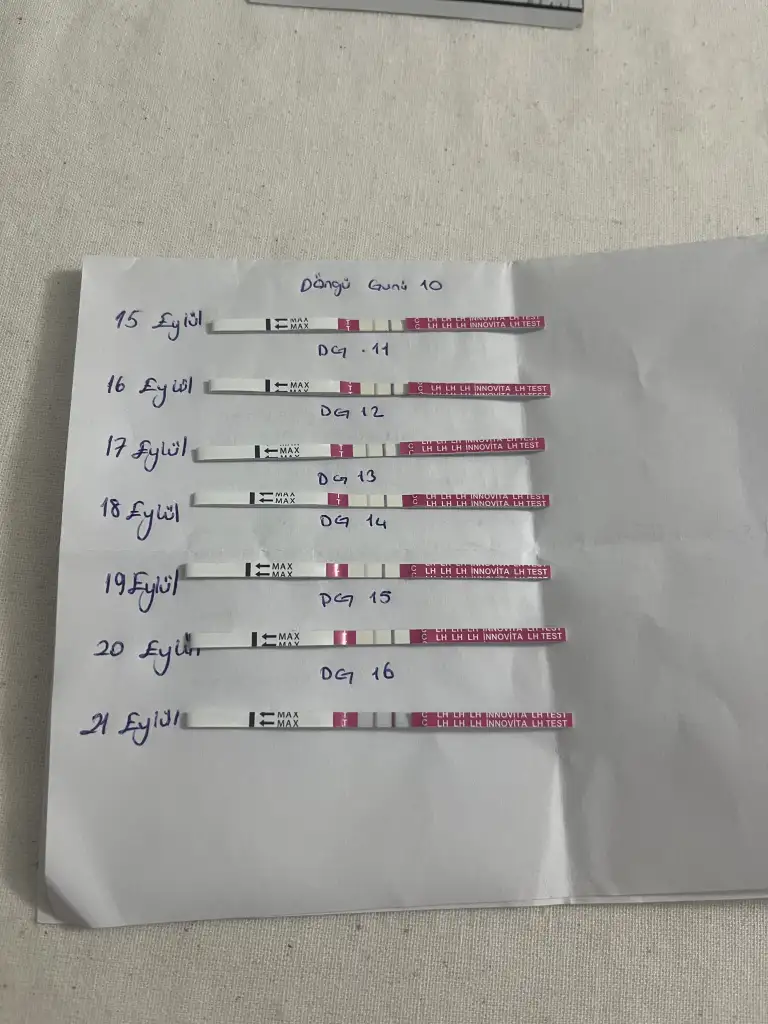 Döngü Günü 10
15 Eylül
MAX
MAX
T
C LH LH LH INNOVITA LH TEST
C LH LH LH INNOVITA LH TEST
DG . 11
16 Eylül
MAX
T
C LH LH LH INNOVITA LH TEST
DG 12
17 Eylül
MAX
T
C LH LH LH INNOVITA LH TEST
DG 13
18 Eylül
MAX
MAX
T
C LH LH LH INNOVITA LH TEST
C LH LH LH INNOVITA LH TEST
DG 14
19 Eylül
MAX
MAX
T
C LH LH LH INNOVITA LH TEST
DG 15
20 Eylül
MAX
T
C LH LH LH INNOVITA LH TEST
DG 16
21 Eylül
MAX
MAX
T
C LH LH LH INNOVITA LH TEST
C LH LH LH INNOVITA LH TEST